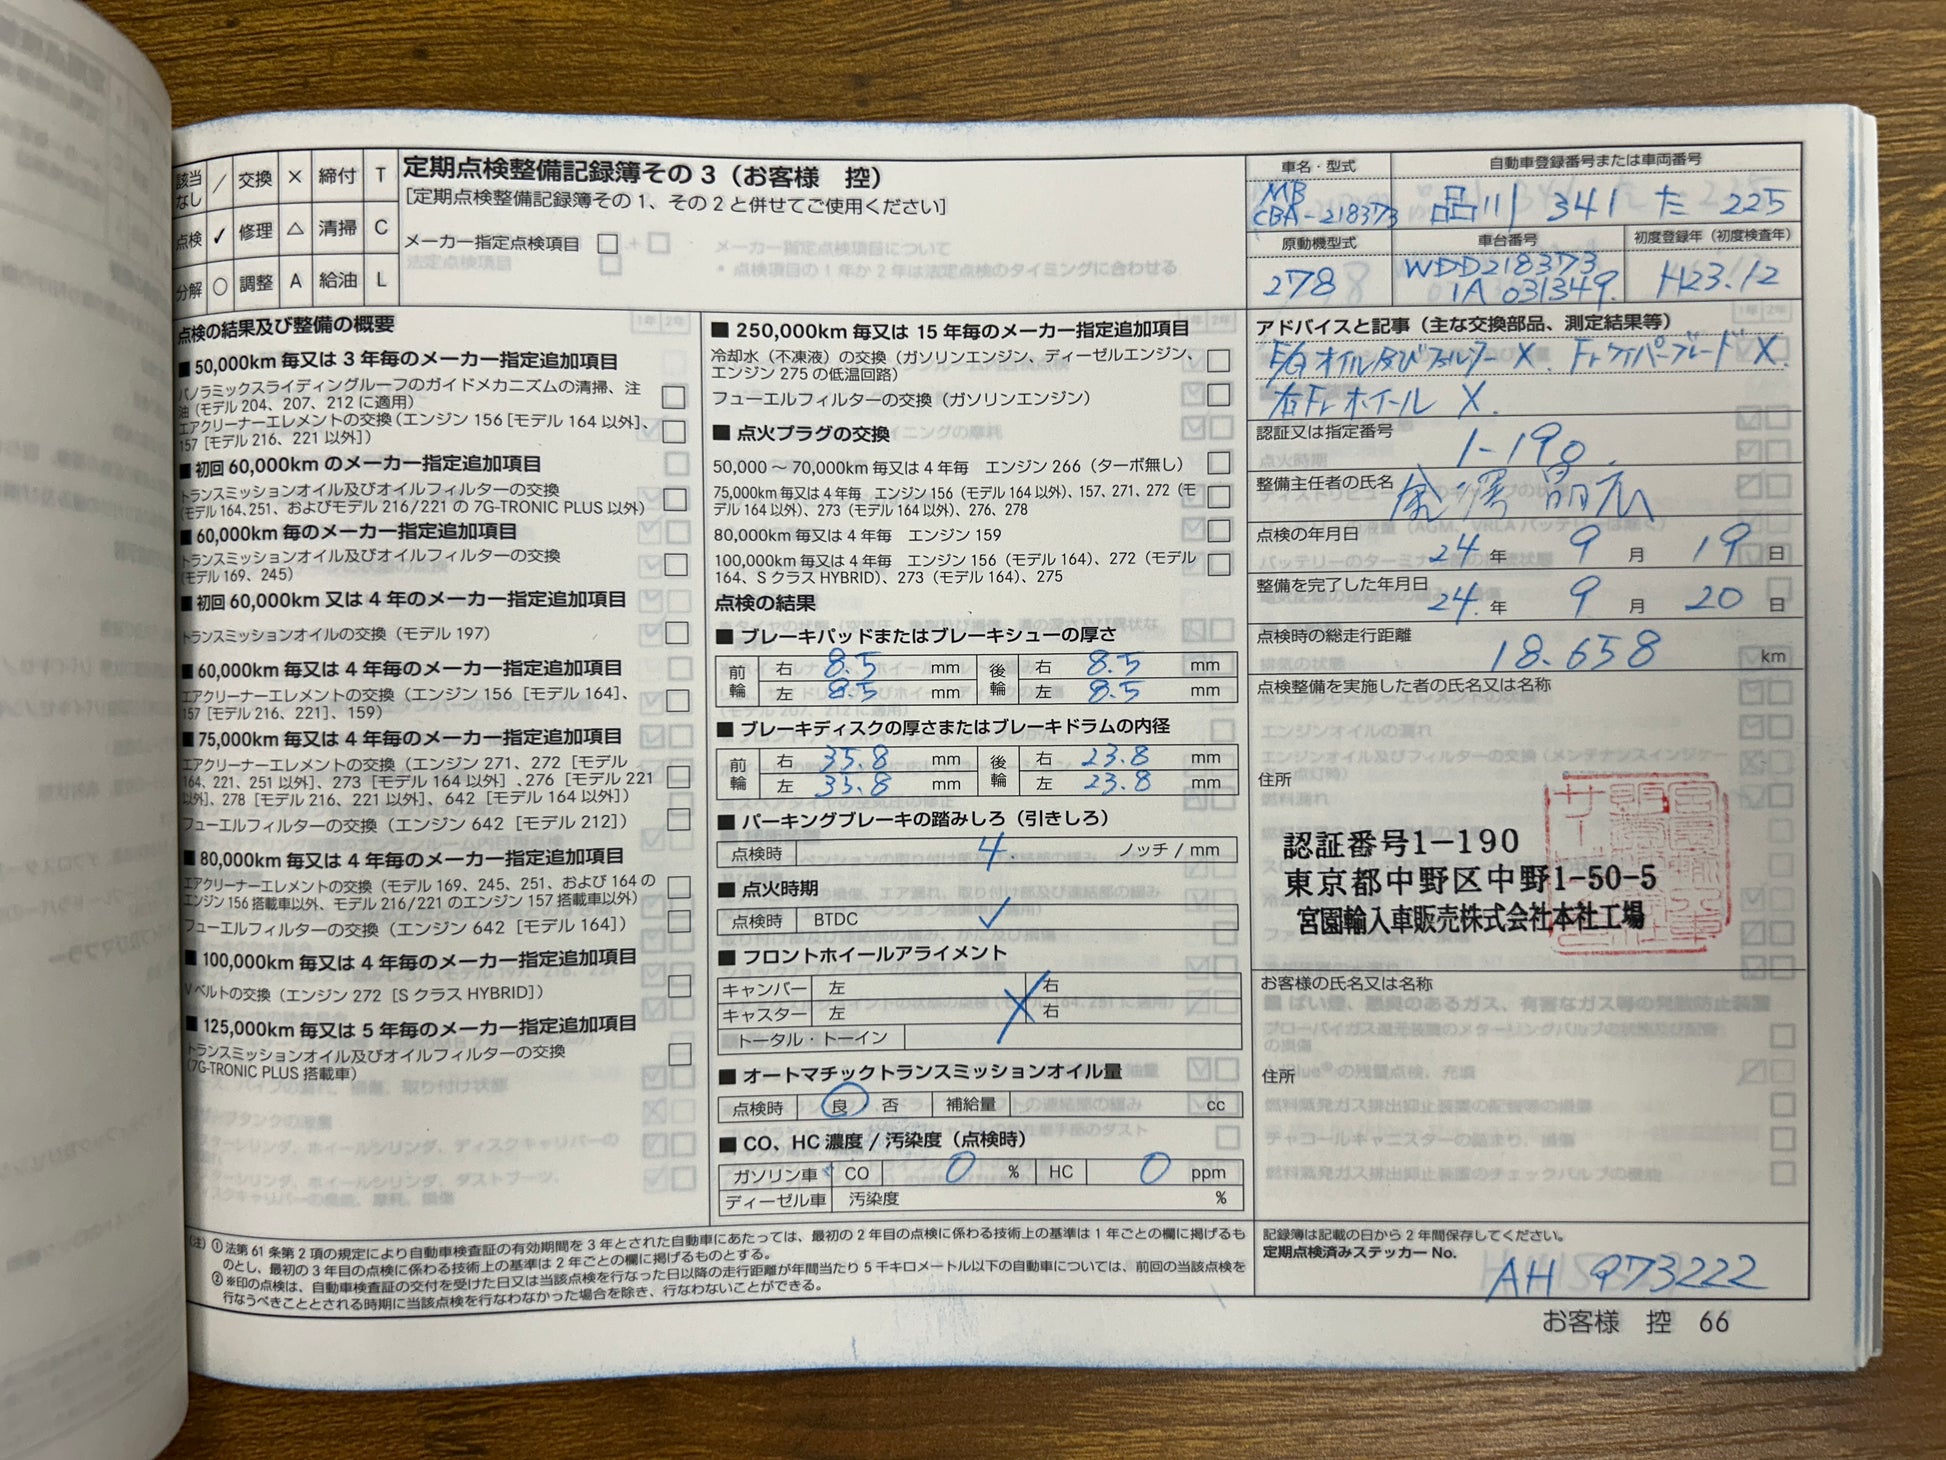 該当なし / 交換 × 締付 T
点検 ✓ 修理 △ 清掃 C
分解 ○ 調整 A 給油 L
定期点検整備記録簿その3（お客様 控）
［定期点検整備記録簿その1、その2と併せてご使用ください］
メーカー指定点検項目 □
車名・型式
MB
CBA-218373
自動車登録番号または車両番号
品川 341 た 225
原動機型式
278
車台番号
WDD218373
1A 031349
初度登録年（初度検査年）
H23.12
点検の結果及び整備の概要
■ 50,000km 毎又は 3 年毎のメーカー指定追加項目
パノラミックスライディングルーフのガイドメカニズムの清掃、注
油（モデル 204、207、212 に適用） □
エアクリーナーエレメントの交換（エンジン 156［モデル 164 以外］、
157［モデル 216、221 以外］） □
■ 初回 60,000km のメーカー指定追加項目
トランスミッションオイル及びオイルフィルターの交換
（モデル 164、251、およびモデル 216/221 の 7G-TRONIC PLUS 以外） □
■ 60,000km 毎のメーカー指定追加項目
トランスミッションオイル及びオイルフィルターの交換
（モデル 169、245） □
■ 初回 60,000km 又は 4 年のメーカー指定追加項目
トランスミッションオイルの交換（モデル 197） □
■ 60,000km 毎又は 4 年毎のメーカー指定追加項目
エアクリーナーエレメントの交換（エンジン 156［モデル 164］、
157［モデル 216、221］、159） □
■ 75,000km 毎又は 4 年毎のメーカー指定追加項目
エアクリーナーエレメントの交換（エンジン 271、272［モデル
164、221、251 以外］、273［モデル 164 以外］、276［モデル 221
以外］、278［モデル 216、221 以外］、642［モデル 164 以外］） □
フューエルフィルターの交換（エンジン 642［モデル 212］） □
■ 80,000km 毎又は 4 年毎のメーカー指定追加項目
エアクリーナーエレメントの交換（モデル 169、245、251、および 164 の
エンジン 156 搭載車以外、モデル 216/221 のエンジン 157 搭載車以外） □
フューエルフィルターの交換（エンジン 642［モデル 164］） □
■ 100,000km 毎又は 4 年毎のメーカー指定追加項目
V ベルトの交換（エンジン 272［S クラス HYBRID］） □
■ 125,000km 毎又は 5 年毎のメーカー指定追加項目
トランスミッションオイル及びオイルフィルターの交換
（7G-TRONIC PLUS 搭載車） □
■ 250,000km 毎又は 15 年毎のメーカー指定追加項目
冷却水（不凍液）の交換（ガソリンエンジン、ディーゼルエンジン、
エンジン 275 の低温回路） □
フューエルフィルターの交換（ガソリンエンジン） □
■ 点火プラグの交換
50,000 〜 70,000km 毎又は 4 年毎 エンジン 266（ターボ無し） □
75,000km 毎又は 4 年毎 エンジン 156（モデル 164 以外）、157、271、272（モ
デル 164 以外）、273（モデル 164 以外）、276、278 □
80,000km 毎又は 4 年毎 エンジン 159 □
100,000km 毎又は 4 年毎 エンジン 156（モデル 164）、272（モデル
164、S クラス HYBRID）、273（モデル 164）、275 □
点検の結果
■ ブレーキパッドまたはブレーキシューの厚さ
前輪 右 8.5 mm 後輪 右 8.5 mm
左 8.5 mm 左 8.5 mm
■ ブレーキディスクの厚さまたはブレーキドラムの内径
前輪 右 35.8 mm 後輪 右 23.8 mm
左 35.8 mm 左 23.8 mm
■ パーキングブレーキの踏みしろ（引きしろ）
点検時 4 ノッチ / mm
■ 点火時期
点検時 BTDC ✓
■ フロントホイールアライメント
キャンバー 左 右
キャスター 左 右
トータル・トーイン
■ オートマチックトランスミッションオイル量
点検時 良・否 補給量 cc
■ CO、HC 濃度 / 汚染度（点検時）
ガソリン車 CO 0 % HC 0 ppm
ディーゼル車 汚染度 %
アドバイスと記事（主な交換部品、測定結果等）
E/G オイル及びフィルター X. Fr ワイパーブレード X.
右Fr ホイール X.
認証又は指定番号
1-190
整備主任者の氏名 金澤 晶広
点検の年月日
24 年 9 月 19 日
整備を完了した年月日
24. 年 9 月 20 日
点検時の総走行距離
18.658 km
点検整備を実施した者の氏名又は名称
住所
認証番号1-190
東京都中野区中野1-50-5
宮園輸入車販売株式会社本社工場
お客様の氏名又は名称
住所
（注）① 法第 61 条第 2 項の規定により自動車検査証の有効期間を 3 年とされた自動車にあたっては、最初の 2 年目の点検に係わる技術上の基準は 1 年ごとの欄に掲げるも
のとし、最初の 3 年目の点検に係わる技術上の基準は 2 年ごとの欄に掲げるものとする。
② ※印の点検は、自動車検査証の交付を受けた日又は当該点検を行なった日以降の走行距離が年間当たり 5 千キロメートル以下の自動車については、前回の当該点検を
行なうべきこととされる時期に当該点検を行なわなかった場合を除き、行なわないことができる。
記録簿は記載の日から 2 年間保存してください。
定期点検済みステッカー No.
AH 973222
お客様 控 66